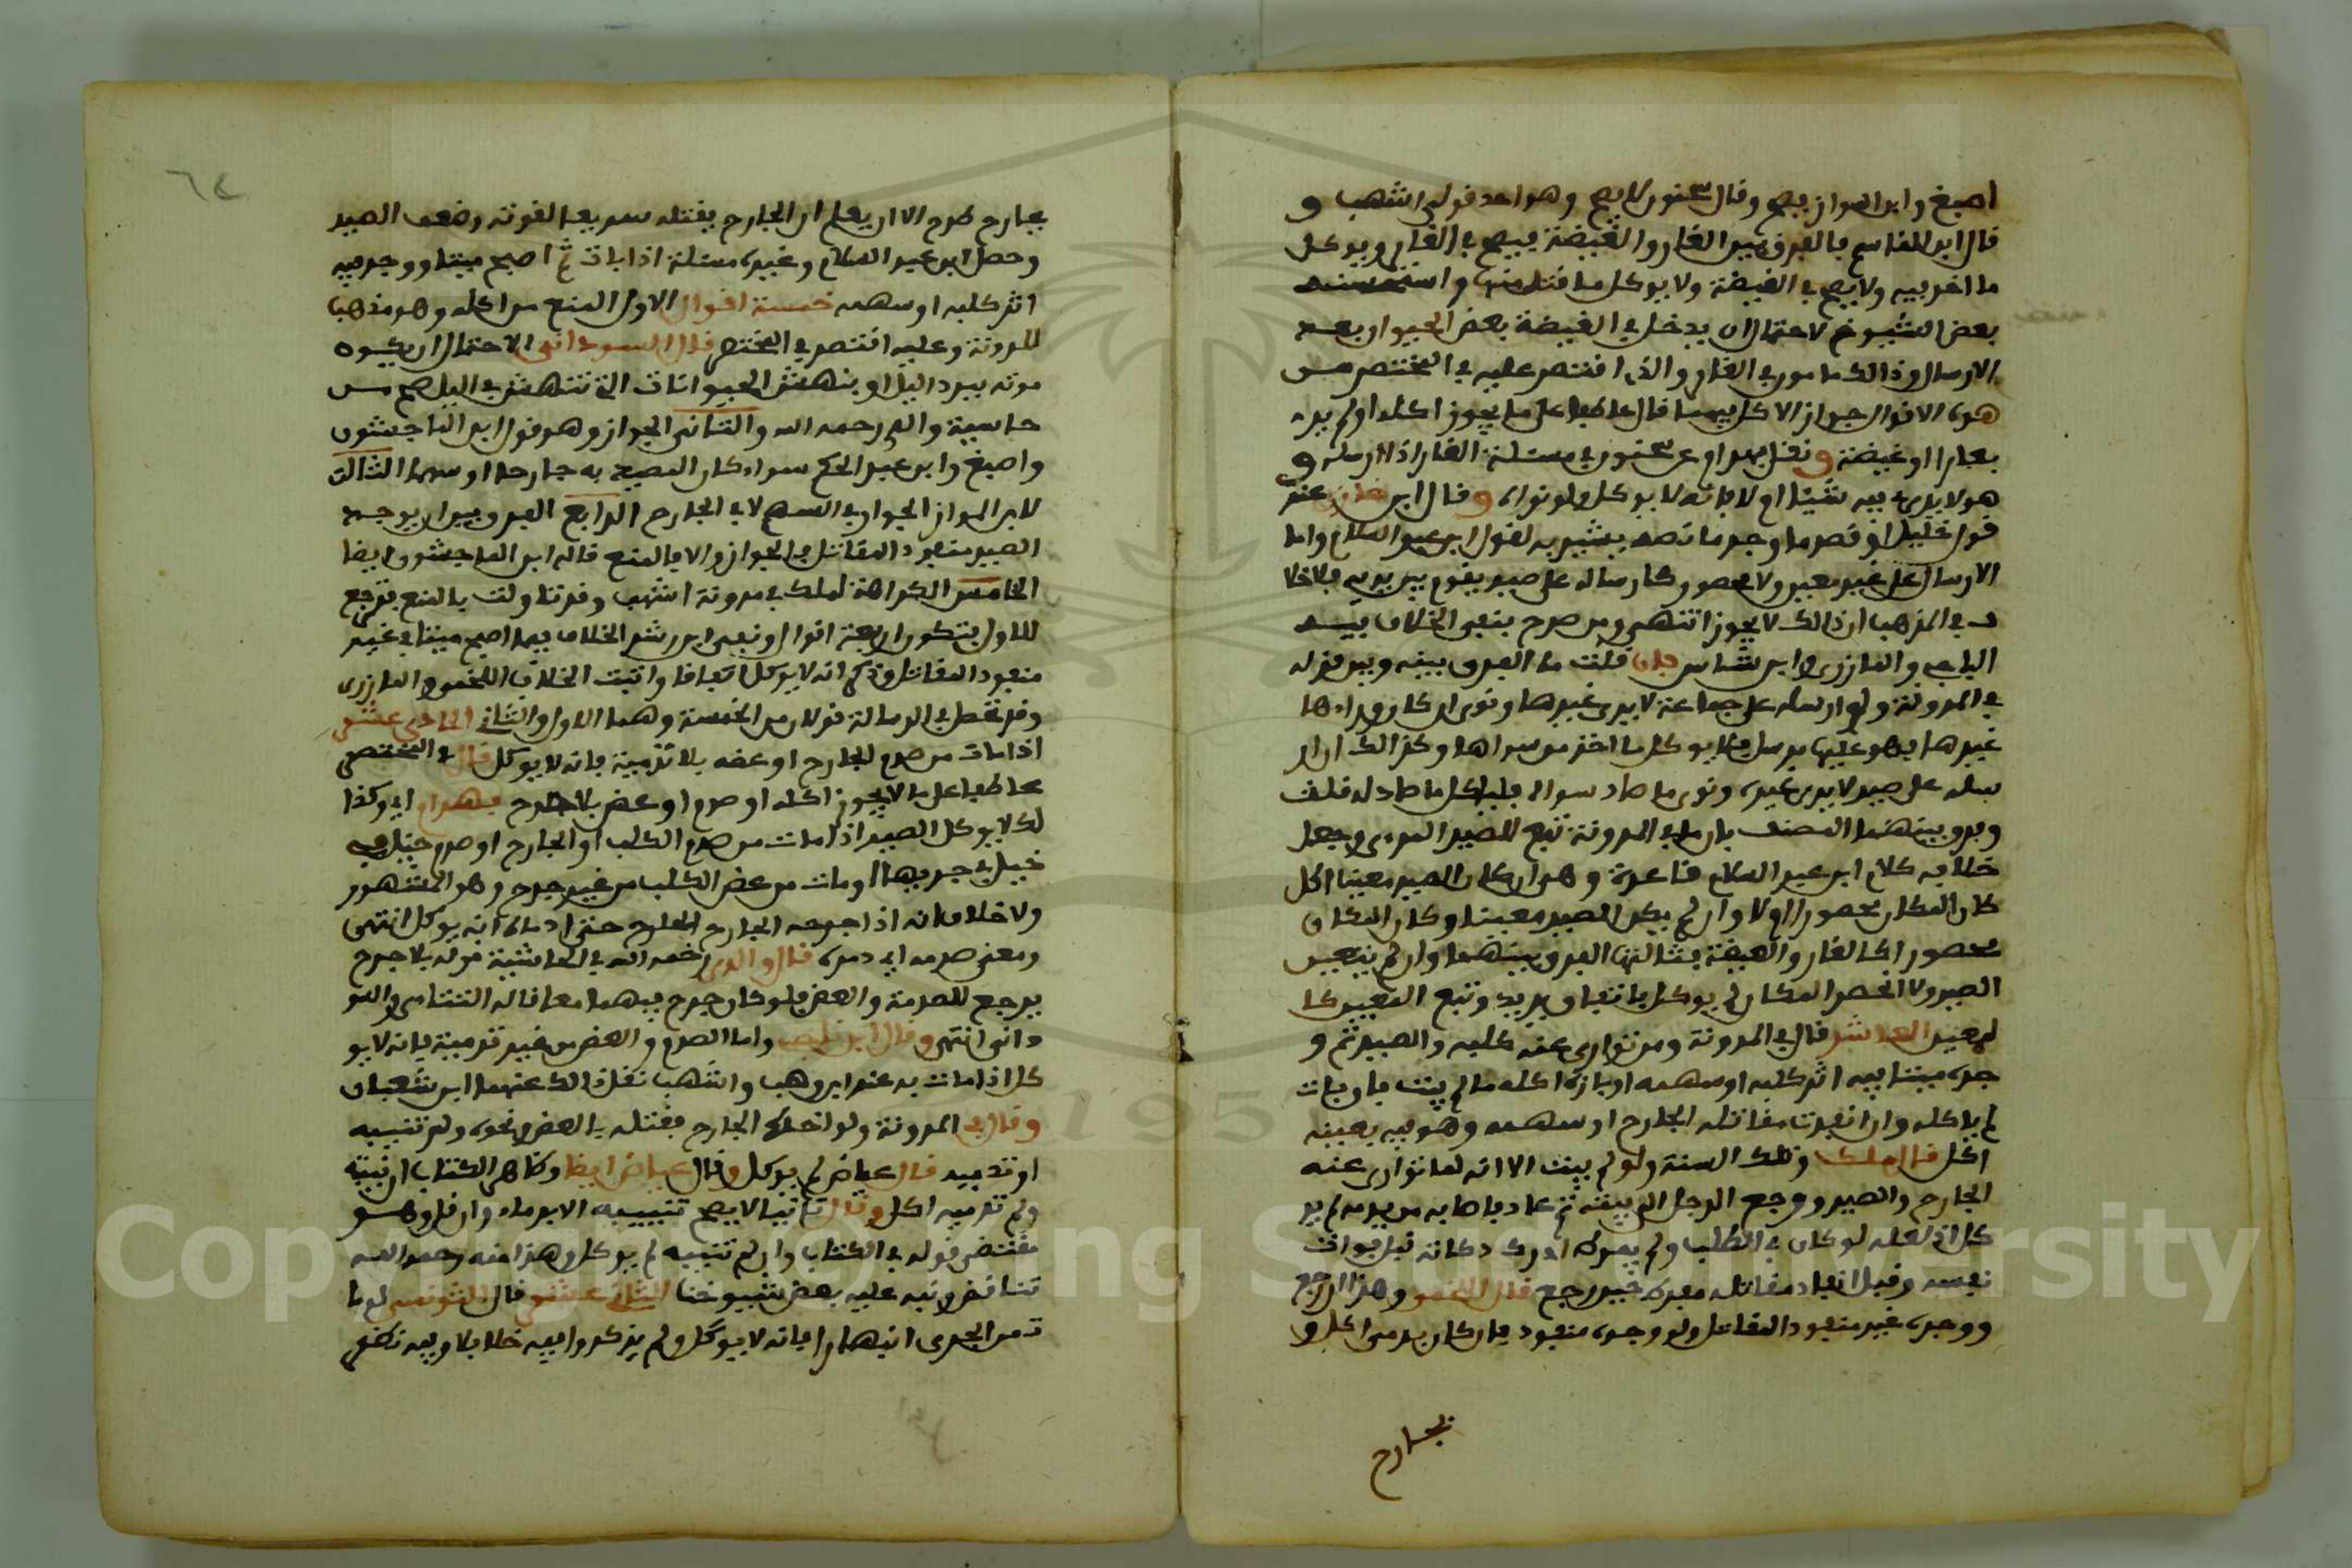 اصبغ وابن المواز يصح وقال سحنون لا يصح وهو احد قولي اشهب و
قال ابن القاسم بالفرق بين الغار والغيضة فيصح في الغار ويوكل
ما اخذ فيه ولا يصح في الغيضة ولا يوكل ما قتل منها واستحسنه
بعض الشيوخ لاحتمال ان يدخل في الغيضة بعض الحيوان بعد
الارسال وذالك مامون في الغار والذي اقتصر عليه في المختصر من
هذه الاقوال جواز الاكل فيهما قال عاطفا على ما يجوز اكله او لم ير
بغار او غيضة ونقل بهرام عن سحنون في مسئلة الغار اذا ارسله و
هو لا يدري فيه شيئا ام لا فانه لا يوكل ولو نواه وقال ابن غازي عند
قول خليل او قصد ما وجد ما نصه يشير به لقول ابن عبد السلام واما
الارسال على غير معين ولا محصور كارساله على صيد يقوم بين يديه فلا خلا
ف في المذهب ان ذالك لا يجوز انتهى وممن صرح بنفي الخلاف فيه
الباجي والمازري وابن شاس فان قلت ما الفرق بينه وبين قوله
في المدونة ولو ارسله على جماعة لا يرى غيرها ونوى ان كان وراءها
غيرها فهو عليها يرسل فليوكل ما اخذ من سواها وكذالك ان ار
سله على صيد لا يرى غيره ونوى ما صاد سواه فلياكل ما صاد له قلت
فرق بينهما المصنف بان ما في المدونة تبع للصيد المرءي وجعل
خلافه كلام ابن عبد السلام قاعدة وهو ان كان الصيد معينا اكل
كان المكان محصورا اولا وان لم يكن الصيد معينا وكان المكان
محصورا كالغار والغيضة فثالثها الفرق بينهما وان لم يتعين
الصيد ولا انحصر المكان لم يوكل باتفاق يريد وتبع المعين كا
لمعين العاشر قال في المدونة ومن توارى عنه كلبه والصيد ثم و
جده ميتا فيه اثر كلبه او سهمه او بازه اكله ما لم يبت فان بات
لم ياكله وان انفذت مقاتله الجارح او سهمه وهو فيه بعينه
اكل قال ملك وتلك السنة ولو لم يبت الا انه لما توارى عنه
الجارح والصيد ورجع الرجل الى بيته ثم عاد فاصابه من يومه لم يو
كل اذ لعله لو كان في الطلب ولم يفرط ادرك ذكاته قبل فوات
نفسه وقبل انفاذ مقاتله فقدره حين رجع قال اللخمي وهذا ان رجع
ووجده غير منفوذ المقاتل ولو وجده منفوذ فان كان بسهم اكل و
بجارح
٦٤
بجارح طرح الا ان يعلم ان الجارح يقتله سريعا لقوته وضعف الصيد
وحصل ابن عبد السلام وغيره مسئلة اذا بات ثم اصبح ميتا ووجد فيه
اثر كلبه او سهمه خمسة اقوال الاول المنع من اكله وهو مذهب
المدونة وعليه اقتصر في المختصر قال السوداني لاحتمال ان يكون
موته ببرد الليل او بنهش الحيوانات التي تنتهش في الليل صح من
حاشية والدي رحمه الله والثاني الجواز وهو قول ابن الماجشون
واصبغ وابن عبد الحكم سواء كان المصيد به جارحا او سهما الثالث
لابن المواز الجواز في السهم لا في الجارح الرابع الفرق بين ان يوجد
الصيد منفوذ المقاتل فالجواز والا فالمنع قاله ابن الماجشون ايضا
الخامس الكراهة لملك في مدونة اشهب وقد تاولت بالمنع فترجع
للاول فتكون اربعة اقوال ونفى ابن رشد الخلاف فيما اصبح ميتا في غير
منفوذ المقاتل وذكر انه لا يوكل اتفاقا واثبت الخلاف اللخمي والمازري
وقد نقط في الرسالة قولان من الخمسة وهما الاول والثاني الحادي عشر
اذا مات من صدم الجارح او عضه بلا تدمية فانه لا يوكل قال في المختصر
عاطفا على ما لا يجوز اكله او صدم او عض بلا جرح بهرام اي وكذا
لك لا يوكل الصيد اذا مات من صدم الكلب او الجارح او صدم
خيل في جريها او مات من عض الكلب من غير جرح وهو المشهور
ولا خلاف انه اذا جرحه الجارح المعلم حتى ادماه انه يوكل انتهى
ومعنى صدمه اي دمره قال والدي رحمه الله في الحاشية قوله بلا جرح
يرجع للصدمة والعض فلو كان جرح فيهما معا قاله التتاءي والسو
داني انتهى وقال ابن ناجي واما الصدم والعض من غير تدمية فانه لا يو
كل اذا مات به عند ابن وهب واشهب نقل ذالك عنهما ابن شعبان
وقال في المدونة ولو اتصلت الجارح فقتله بالعض ونحوه ولم تنييبه
او تدميه قال عياض لم يوكل وقال عياض ايضا وظاهر الكتاب ان نيبته
ولم تدميه اكل وقال ثانيا لا يصح تنييبه الا بدماء وان قل وهو
مقتضى قوله في الكتاب وان لم تنييبه لم يوكل وهذا منه رحمه الله
تناقض ونبه عليه بعض شيوخنا الثاني عشر قال التونسي لو ما
ت من الجري انبهارا فانه لا يوكل ولم يذكروا فيه خلافا وفيه نظر